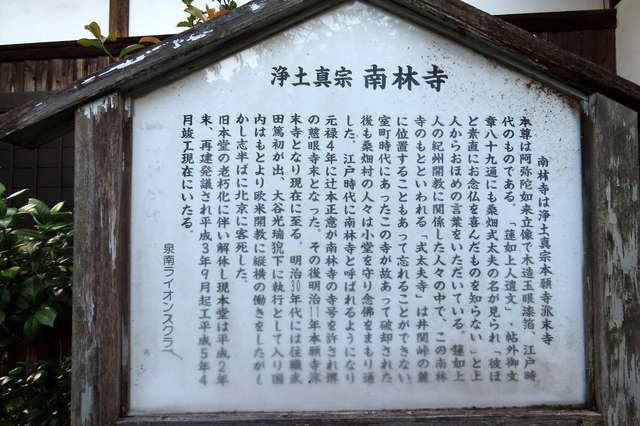 浄土真宗 南林寺
南林寺は浄土真宗本願寺派末寺
本尊は阿弥陀如来立像で木造玉眼漆箔、江戸時
代のものである。「蓮如上人遺文」、帖外御文
章八十九通にも桑畑式太夫の名が見られ「彼ほ
ど素直にお念仏を喜んだものを知らない」と上
人からおほめの言葉をいただいている。蓮如上
人の紀州開教に関係した人々の中で、この南林
寺のもとといわれる「式太夫寺」は井関峠の麓
に位置することもあって忘れることができない。
室町時代にあったこの寺が故あって破却された
後も桑畑村の人々は小堂を守り念佛をまもり通
した。江戸時代に南林寺と呼ばれるようになり
元禄4年に辻本正意が南林寺の寺号を許され
の慈眼寺末となった。その後明治11年本願寺派
末寺となり現在に至る。明治30年代には住職武
田篤初が出、大谷光瑞猊下に執行として入り国
内はもとより欧米開教に縦横の働きをしたがし
かし志半ばに北京に客死した。
旧本堂の老朽化に伴い解体し現本堂は平成2年
末、再建発議され平成3年9月起工平成5年4
月竣工現在にいたる。
泉南ライオンズクラブ